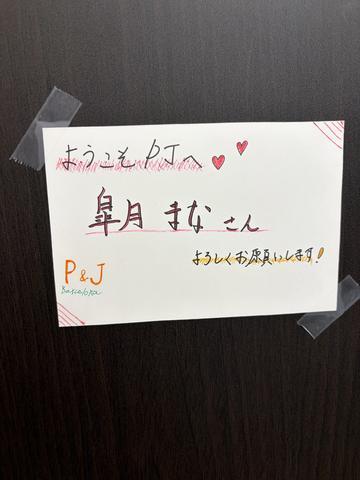 ようこそ PJへ
皐月 まな さん
よろしくお願いします!
P&J